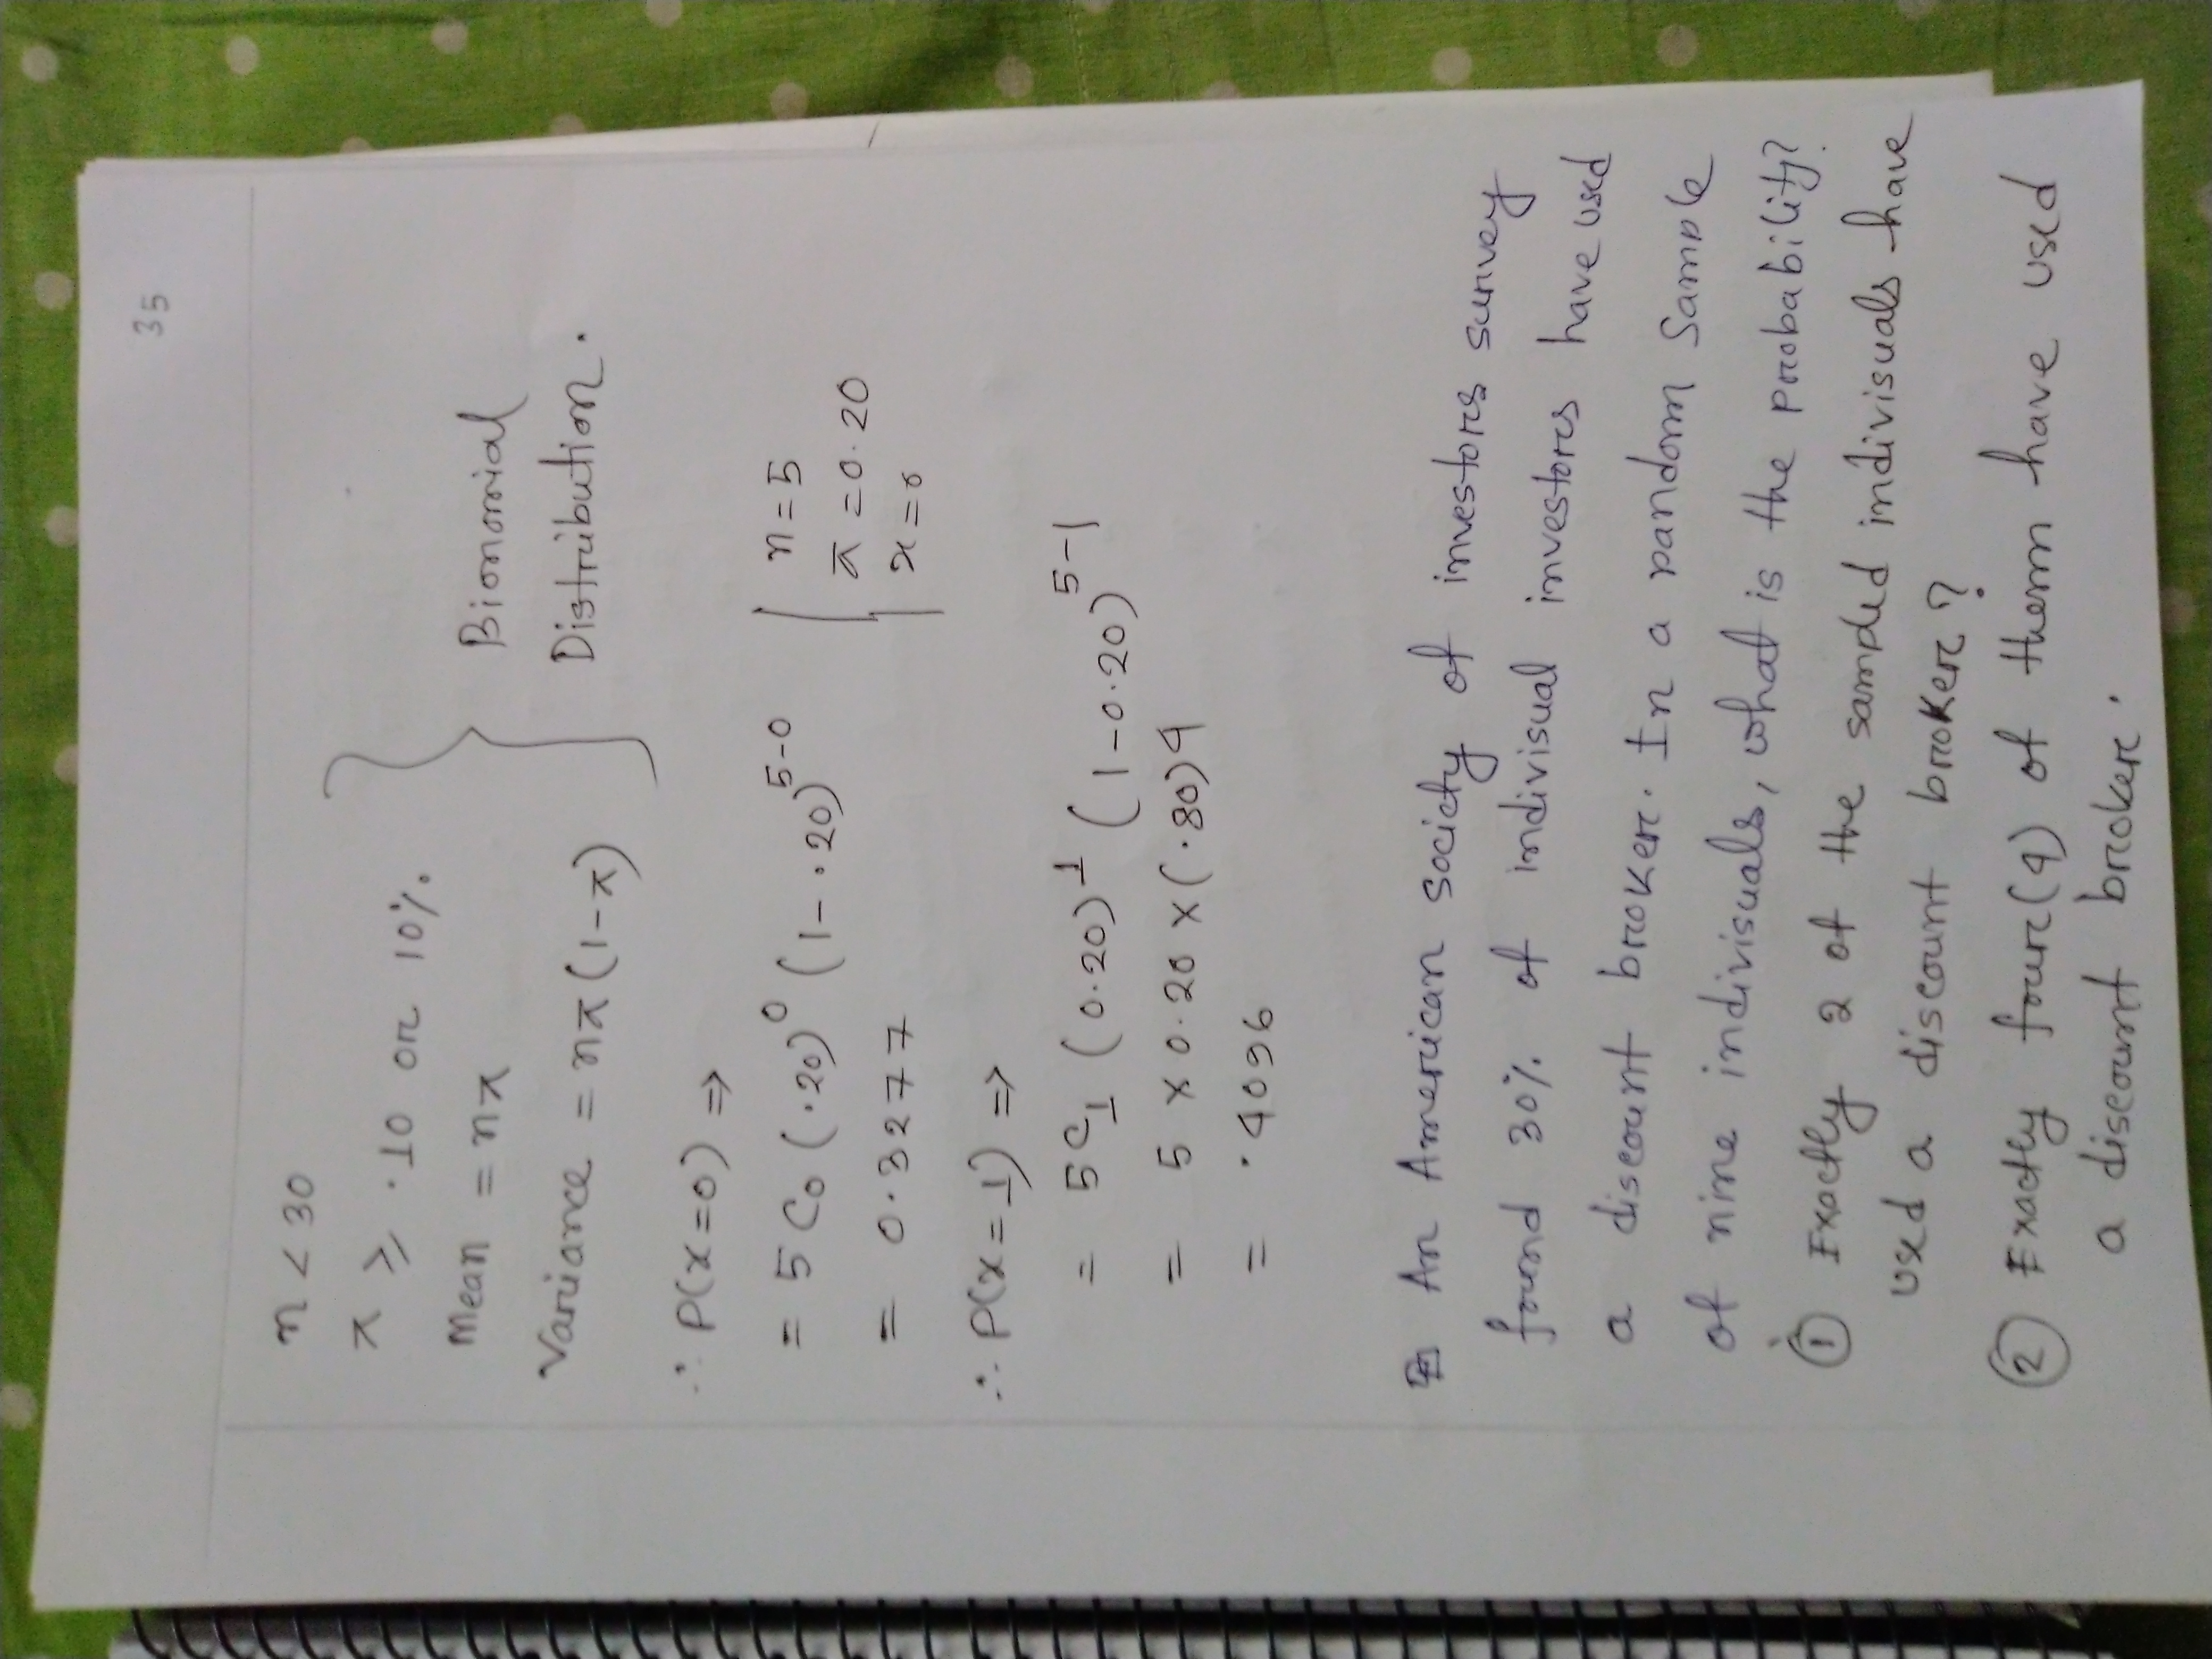 35
n < 30
π ≥ .10 or 10%.
Mean = nπ
Variance = nπ(1-π)
Bionomial
Distribution.
∴ P(x=0) ⇒
= 5C₀ (.20)⁰ (1-.20)⁵⁻⁰
= 0.3277
n = 5
π = 0.20
x = 0
∴ P(x=1) ⇒
= 5C₁ (0.20)¹ (1-0.20)⁵⁻¹
= 5 x 0.20 x (.80)4
= .4096
An American society of investors survey
found 30% of indivisual investors have used
a discount broker. In a random sample
of nine indivisuals, what is the probability?
① Exactly 2 of the sampled indivisuals have
used a discount broker?
② Exactly four(4) of them have used
a discount broker.